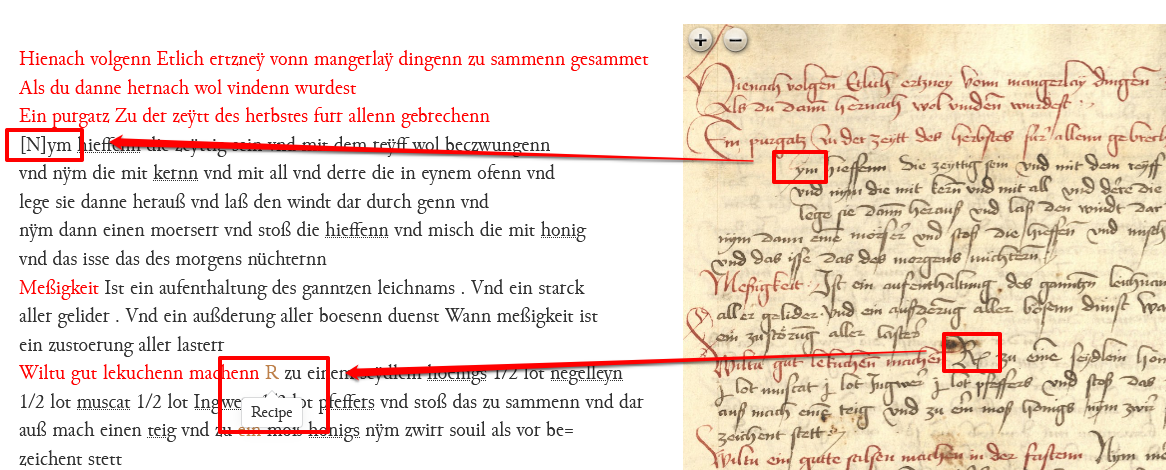 Hienach volgenn Etlich ertzneÿ vonn mangerlaÿ dingenn zu sammenn gesammet
Als du danne hernach wol vindenn wurdest
Ein purgatz Zu der zeÿtt des herbstes furr allenn gebrechenn
[N]ym hieffenn die zeÿttig sein vnd mit dem reÿff wol beczwungenn
vnd nÿm die mit kernn vnd mit all vnd derre die in eynem ofenn vnd
lege sie danne herauß vnd laß den windt dar durch genn vnd
nÿm dann einen moerserr vnd stoß die hieffenn vnd misch die mit honig
vnd das isse das des morgens nüchternn
Meßigkeit Ist ein aufenthaltung des ganntzen leichnams . Vnd ein starck
aller gelider . Vnd ein außderung aller boesenn duenst Wann meßigkeit ist
ein zustoerung aller lasterr
Wiltu gut lekuchenn machenn R zu einem seydlem hoenigs 1/2 lot negelleyn
1/2 lot muscat 1/2 lot Ingwer 1/2 lot pfeffers vnd stoß das zu sammenn vnd dar
Recipe
auß mach einen teig vnd zu ein moß honigs nÿm zwirr souil als vor be=
zeichent stett
+ −
Hienach volgen Etlich ertzney vonn mangerlay dingen
Als du dann hernach wol vinden wurdest
Ein purgatz Zu der zeytt des herbstes fur allenn gebrech
ym hieffenn die zeyttig sein vnd mit dem reyff
vnd nym die mit kern vnd mit all vnd derre die
lege sie dann herauß vnd laß den windt dar
nym dann eine moserr vnd stoß die hieffen vnd misch
vnd das isse das des morgens nuchtern
Meßigkeit Ist ein aufenthaltung des ganntzen leichnam
aller gelider. Vnd ein außderung aller bosenn dunst Wa
ein zustorung aller laster
Wiltu gut lekuchen machen R zu eine seydlem hon
j lot muscat j lot Ingwer j lot pfeffers vnd stoß das
auß mach eine teig vnd zu ein moß honigs nym zwir
zeichent stett
Wiltu ein gutte sulsen machen in der fasten Nym